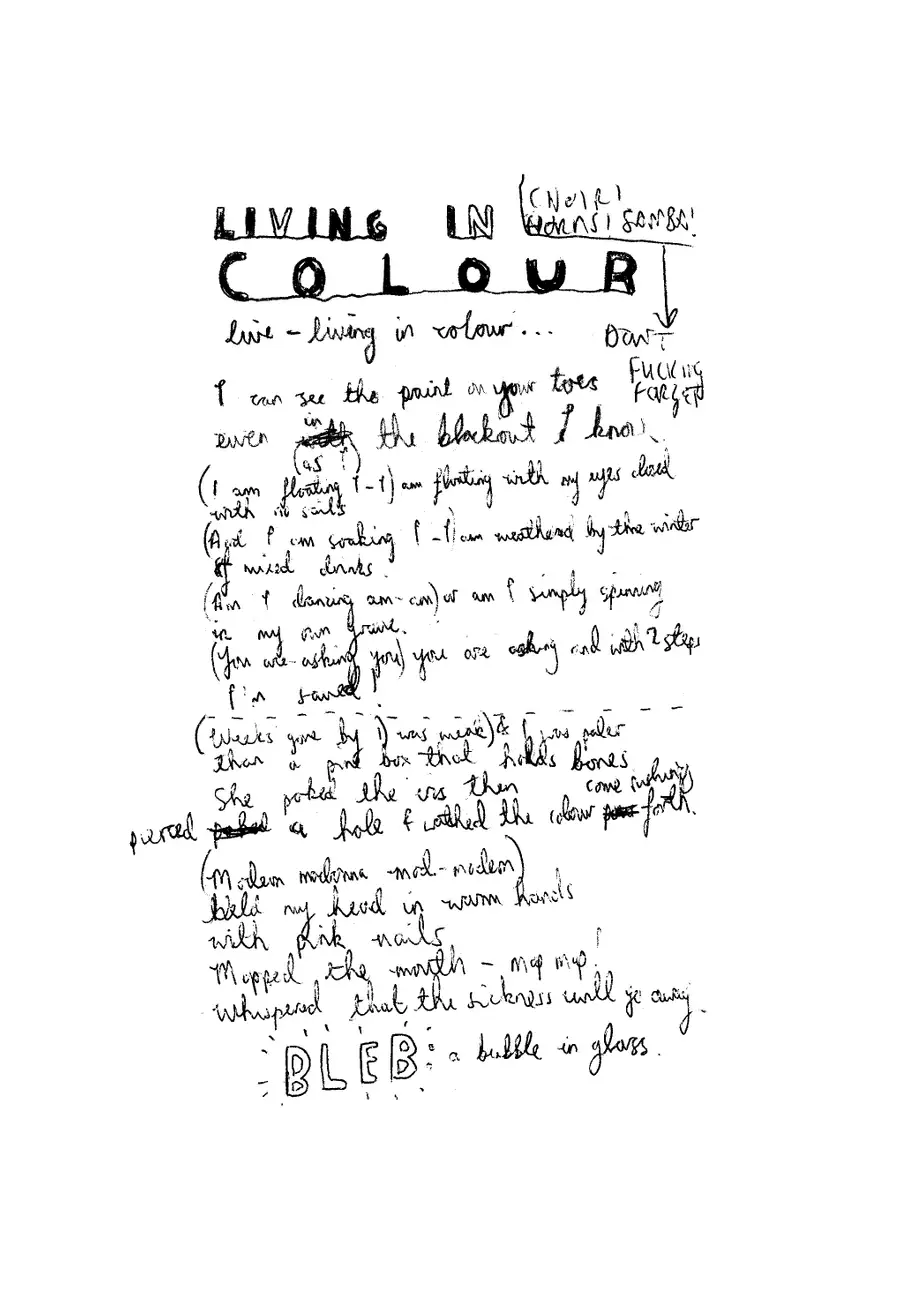 LIVING IN
COLOUR
CHOIR!
HORNS! SAMBA!
DON'T
FUCKING
FORGET
live - living in colour...
I can see the paint on your toes
even in the blackout I know
(as I)
(I am floating I-I) am floating with my eyes closed
with no sails
(And I am soaking I-I) am weathered by the winter
of mixed drinks.
(Am I dancing am-am) or am I simply spinning
in my own grave.
(You are asking you) you are asking and with 2 steps
I'm saved!
(Weeks gone by I) was weak) & I was paler
than a pine box that holds bones
She poked the iris then
pierced a hole & watched the colour come rushing forth.
(Modern madonna -mod-modern)
held my head in warm hands
with pink nails
Mopped the mouth - mop mop!
whispered that the sickness will go away.
BLEB: a bubble in glass.